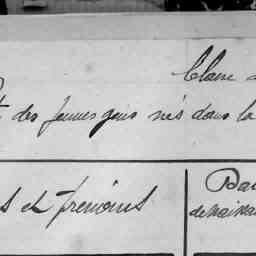 Classe d
des jeunes gens nés dans la
s et prénoms
Da
de naissa